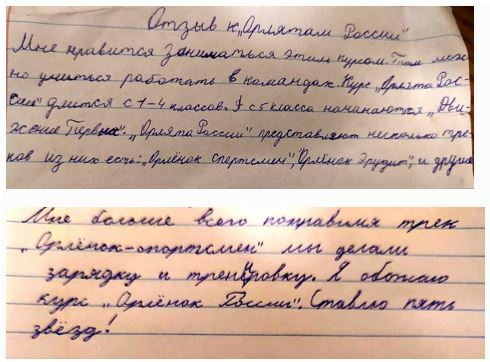 Отзыв к „Орлятам России"
Мне нравится заниматься этим курсом. Там мож-
но учиться работать в командах. Курс „Орлята Рос-
сии" длится с 1-4 классов. А с 5 класса начинаются „Дви-
жение Первых". „Орлята России" представляют несколько тре-
ков из них есть: „Орлёнок спортсмен", „Орлёнок Эрудит", и другие
Мне больше всего понравился трек
„Орлёнок-спортсмен" мы делали
зарядку и тренировку. Я обожаю
курс „Орлёнок России". Ставлю пять
звёзд!